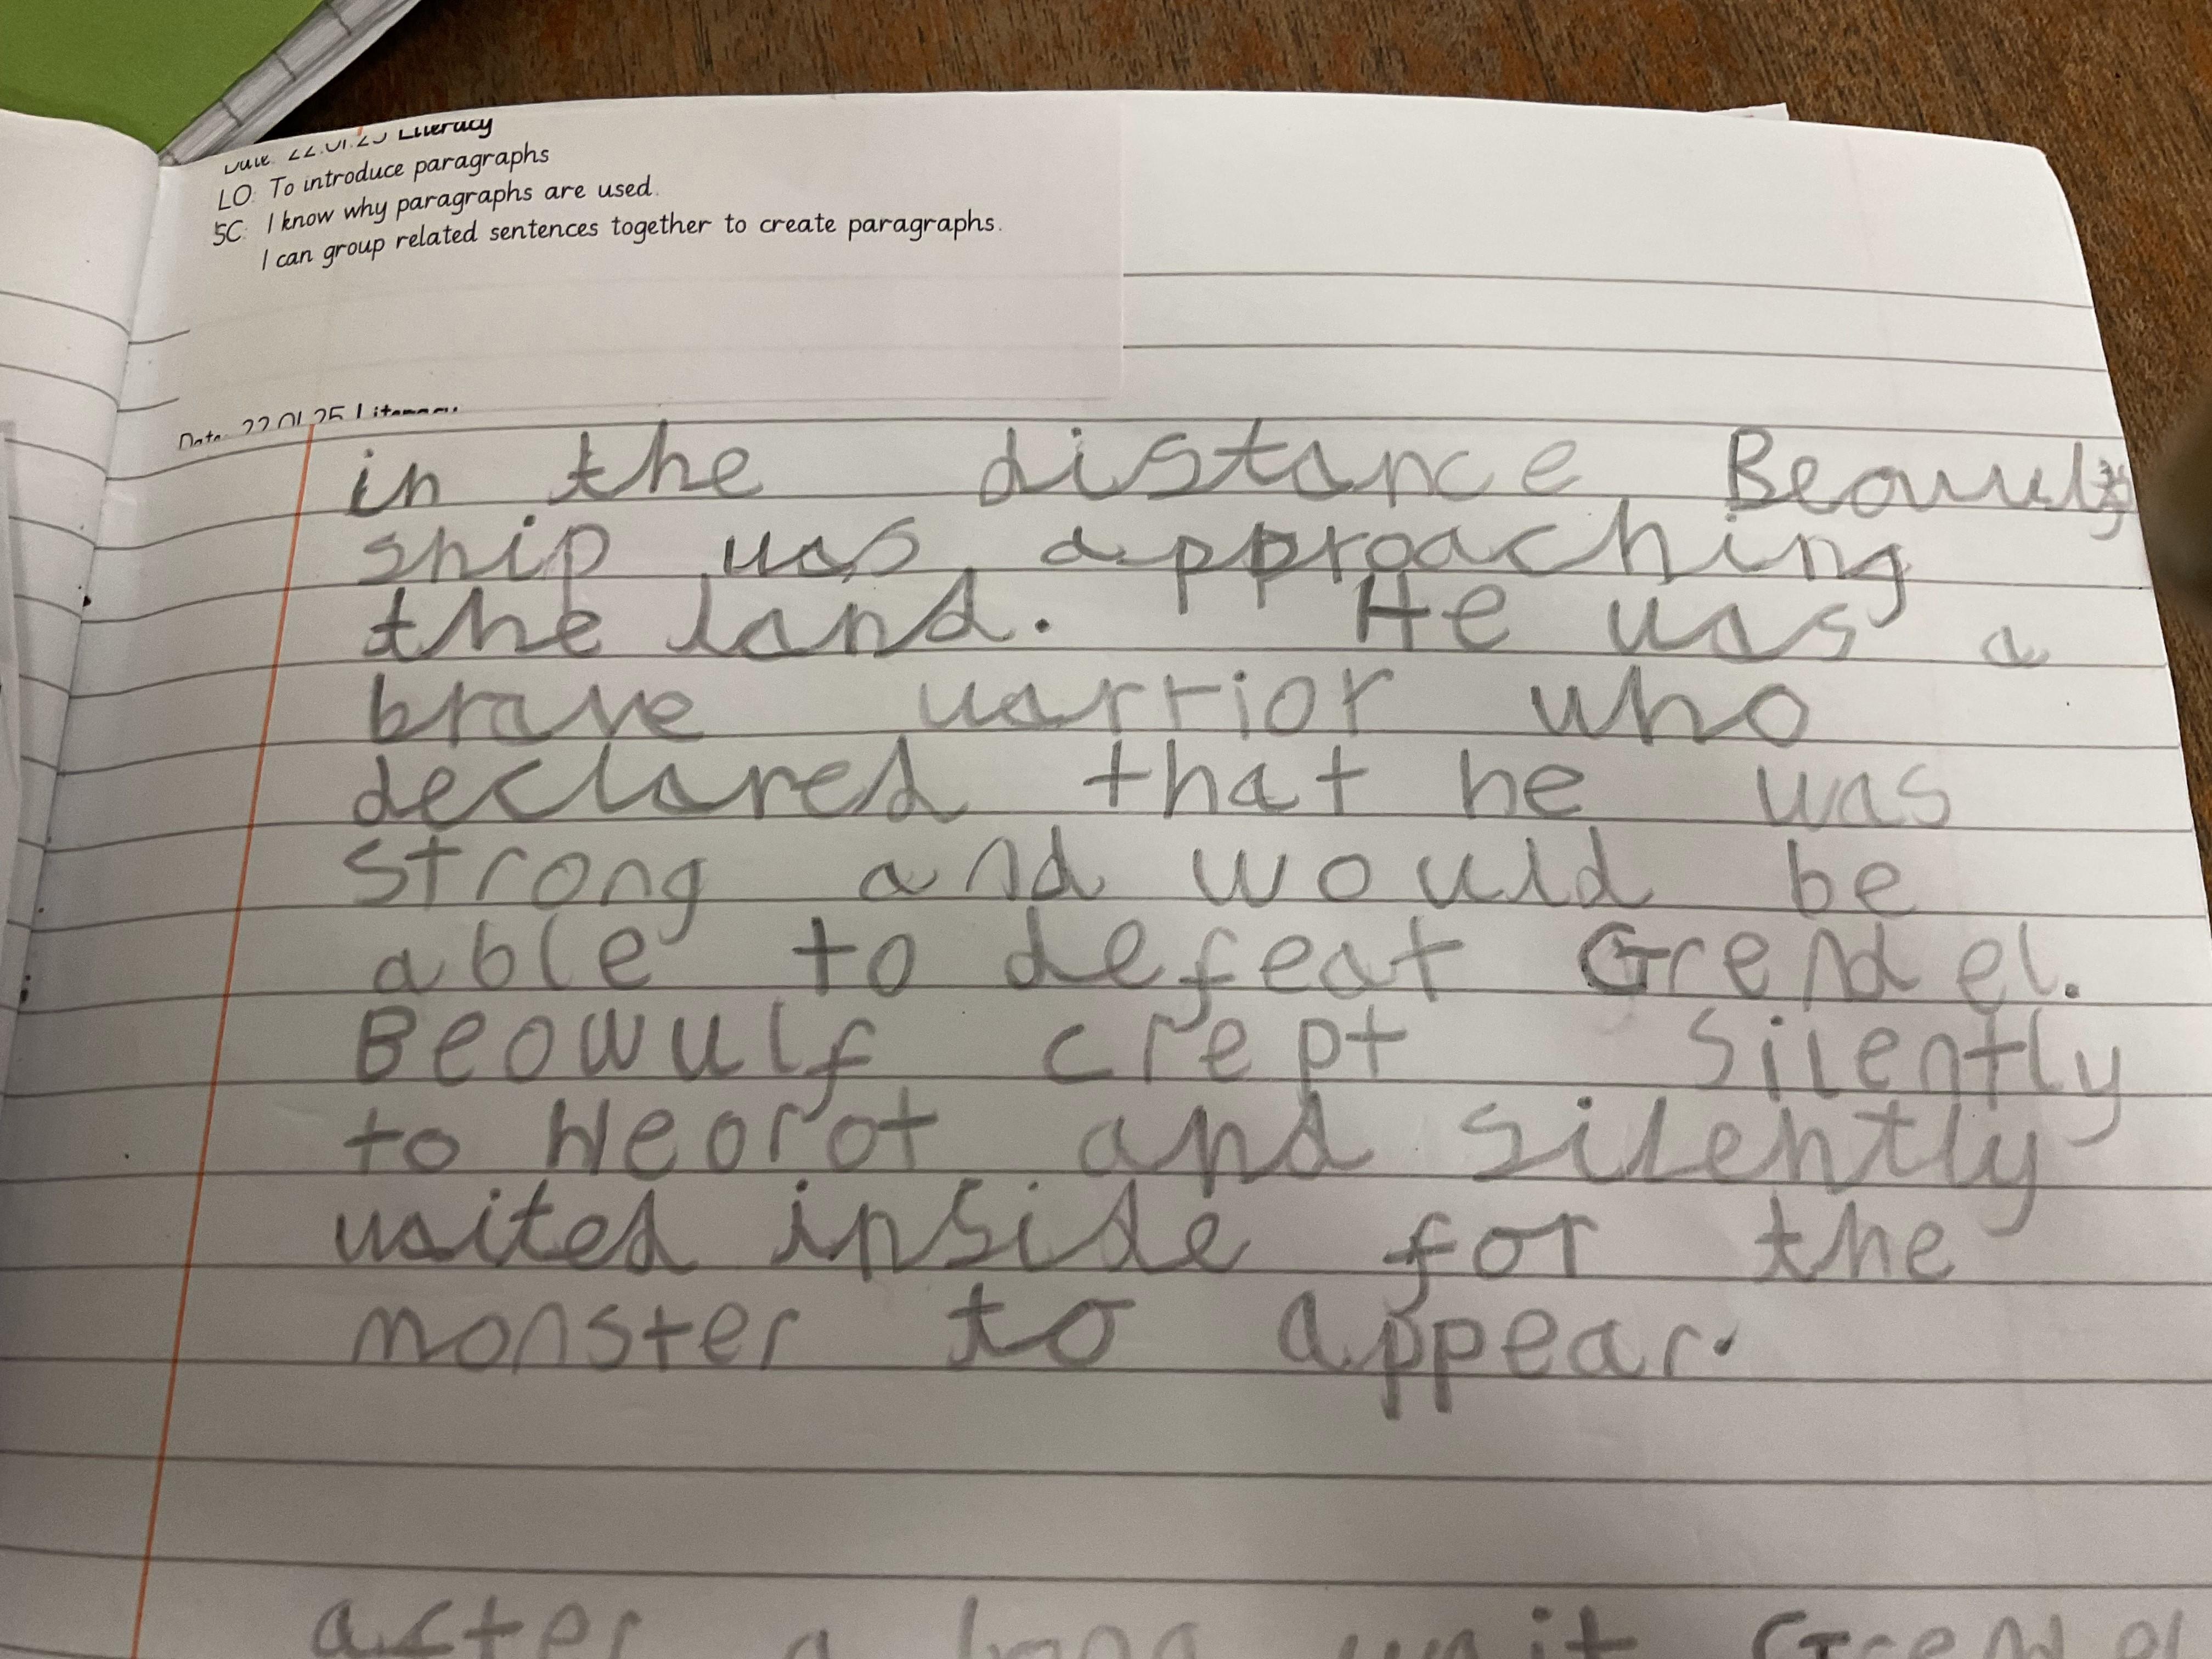 Date: 22.01.25 Literacy
LO: To introduce paragraphs
SC: I know why paragraphs are used.
I can group related sentences together to create paragraphs.
Date: 22.01.25 Literacy
in the distance, Beowulf's
ship was approaching
the land. He was a
brave warrior who
declared that he was
strong and would be
able to defeat Grendel.
Beowulf crept silently
to Heorot and silently
waited inside for the
monster to appear.
after a long wait Grendel